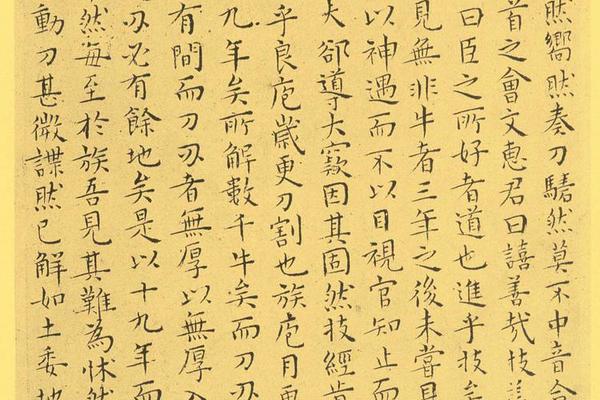 然嚮然奏刀騞然莫不中音合
首之會文惠君曰譆善哉技蓋
曰臣之所好者道也進乎技矣
見無非牛者三年之後未嘗見
以神遇而不以目視官知止而
大郤導大窾因其固然技經肯
乎良庖歲更刀割也族庖月更
九年矣所解數千牛矣而刀刃
有間而刀刃者無厚以無厚入
刃必有餘地矣是以十九年而
然每至於族吾見其難為怵然
動刀甚微諜然已解如土委地